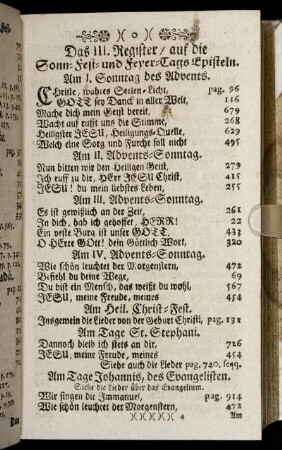 Das III. Register / auf die
Sonn- Fest- und Feyer-Tags Episteln.
Am I. Sonntag des Advents.
Christe, wahres Seelen-Licht, pag. 96
GOTT sey Danck in aller Welt, 116
Mache dich mein Geist bereit, 679
Wacht auf rufft uns die Stimme, 268
Heiligster JESU, Heiligungs-Quelle, 629
Welch eine Sorg und Furcht soll nicht 495
Am II. Advents-Sonntag.
Nun bitten wir den Heiligen Geist, 279
Ich ruff zu dir, HErr JESU Christ, 415
JESU! du mein liebstes Leben, 255
Am III. Advents-Sonntag.
Es ist gewißlich an der Zeit, 261
In dich, hab ich gehoffet, HERR! 22
Ein veste Burg ist unser GOTT, 433
O HErre GOtt! dein Göttlich Wort, 320
Am IV. Advents-Sonntag.
Wie schön leuchtet der Morgenstern, 472
Befiehl du deine Wege, 69
Du bist ein Mensch, das weißt du wohl, 567
JESU, meine Freude, meines 454
Am Heil. Christ-Fest.
Insgemein die Lieder von der Geburt Christi, pag. 131
Am Tage St. Stephani.
Dannoch bleib ich stets an dir, 726
JESU, meine Freude, meines 454
Siehe auch die Lieder pag. 740. seqq.
Am Tage Johannis, des Evangelisten.
Siehe die Lieder über das Evangelium.
Wir singen dir Immanuel, pag. 914
Wie schön leuchtet der Morgenstern, 472
4 Am